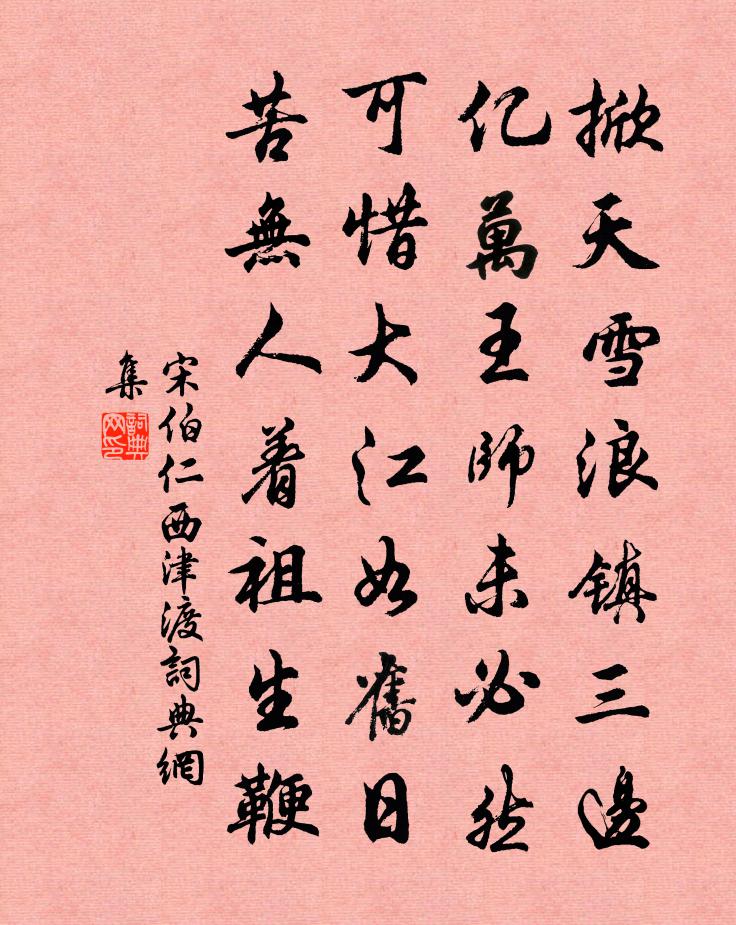 掀天雪浪镇三邊
亿萬王師未必然
可惜大江如舊日
苦無人着祖生鞭
宋伯仁西津渡詞典網
集
詞典网印